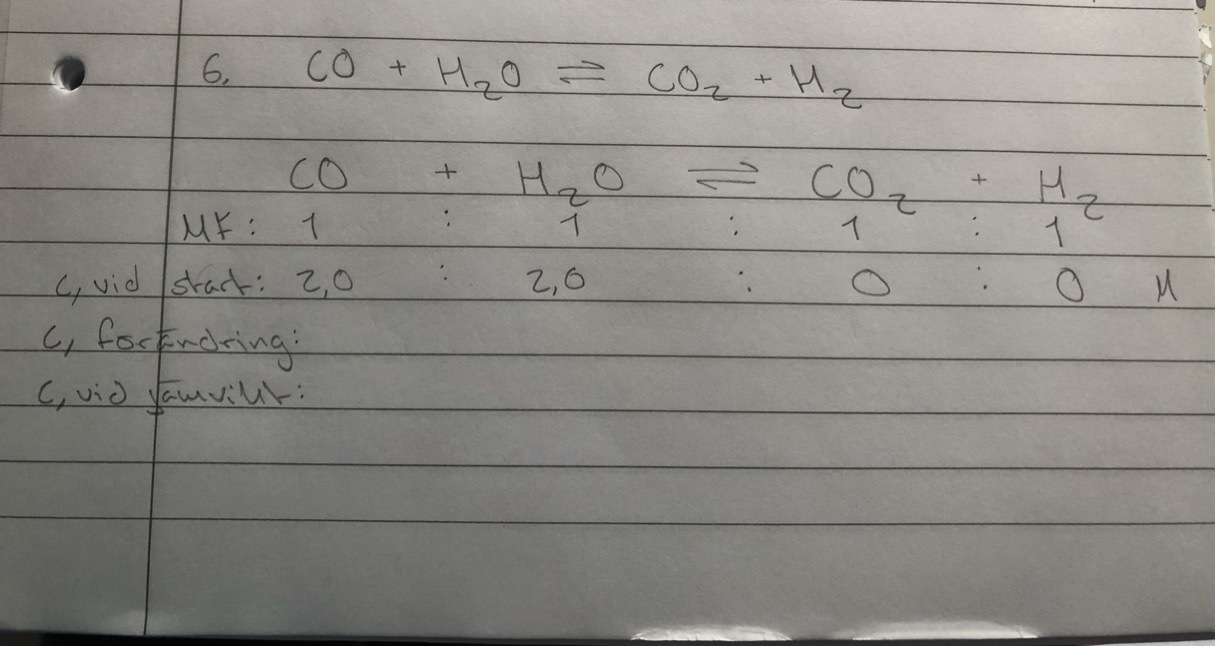 6. CO + H₂O ⇌ CO₂ + H₂
CO + H₂O ⇌ CO₂ + H₂
MF: 1 : 1 : 1 : 1
C, vid start: 2,0 : 2,0 : 0 : 0 M
C, förändring:
C, vid jämvikt: